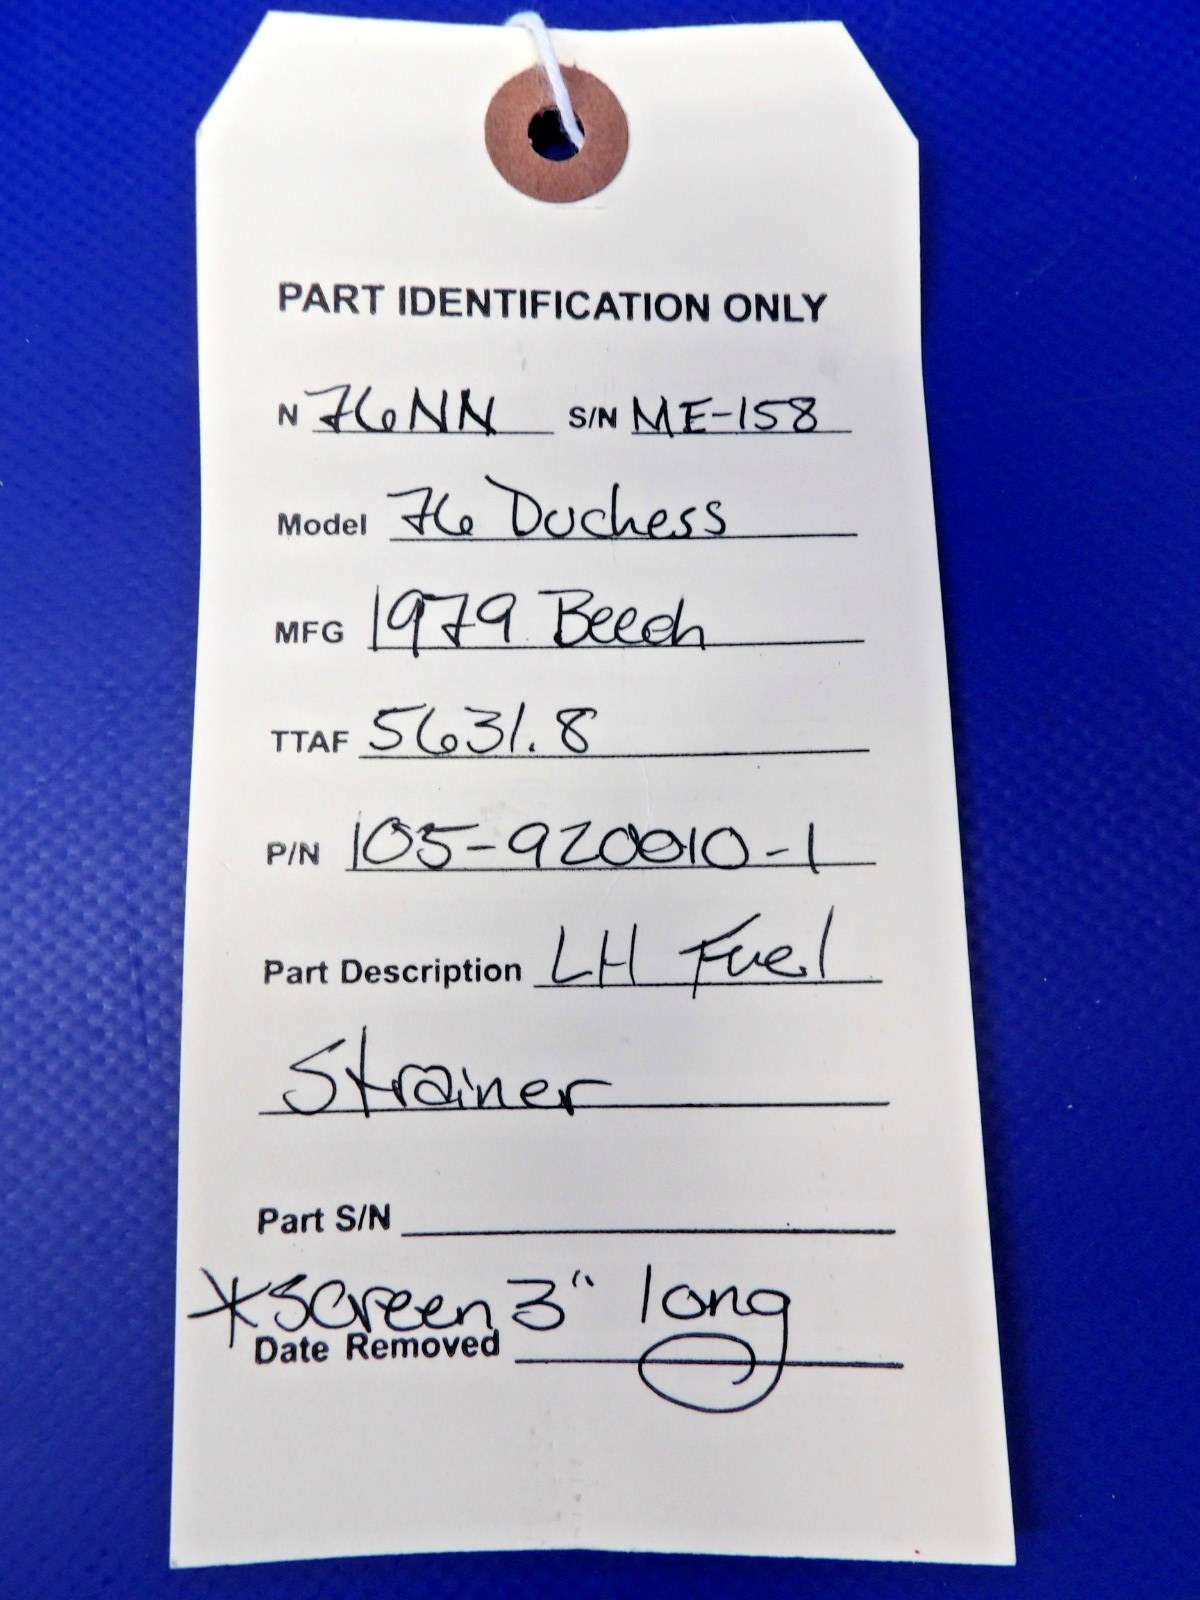 PART IDENTIFICATION ONLY
N 76NN S/N ME-158
Model 76 Duchess
MFG 1979 Beech
TTAF 5631.8
P/N 105-920010-1
Part Description LH Fuel
Strainer
Part S/N
*Screen 3" long
Date Removed